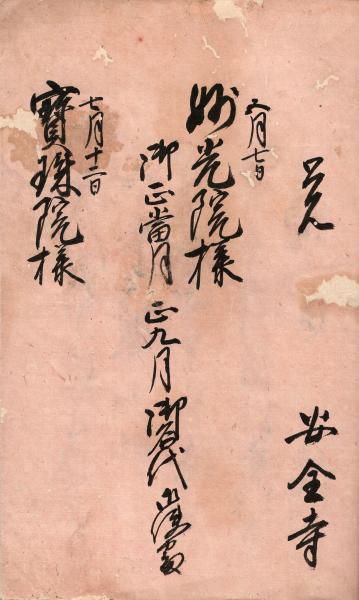 覚
安全寺
五月七日
妙光院様
御正當月 正九月 御名代
七月十二日
寶珠院様